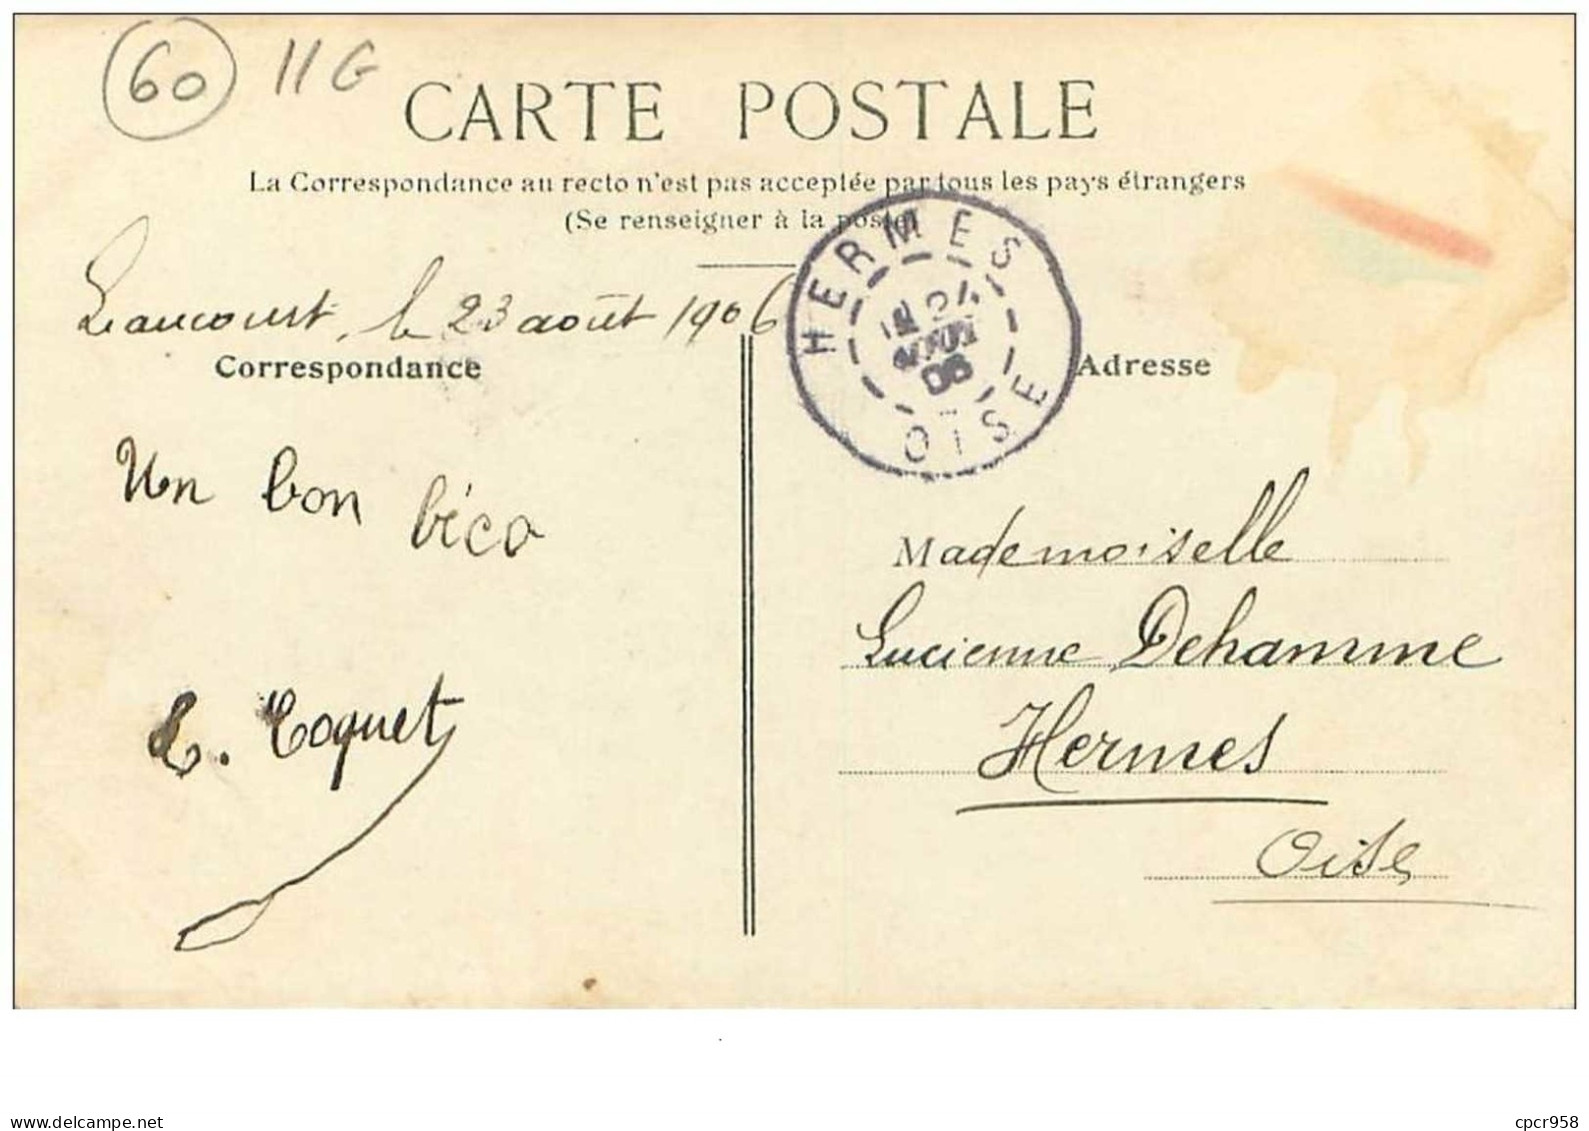 60 11 G
CARTE POSTALE
La Correspondance au recto n'est pas acceptée par tous les pays étrangers
(Se renseigner à la poste)
Liancourt, le 23 août 1906
HERMES
24
AOUT
06
OISE
Correspondance
Adresse
Un bon béco
L. Coquet
Mademoiselle
Lucienne Dehamme
Hermes
Oise
www.delcampe.net
cpcr958